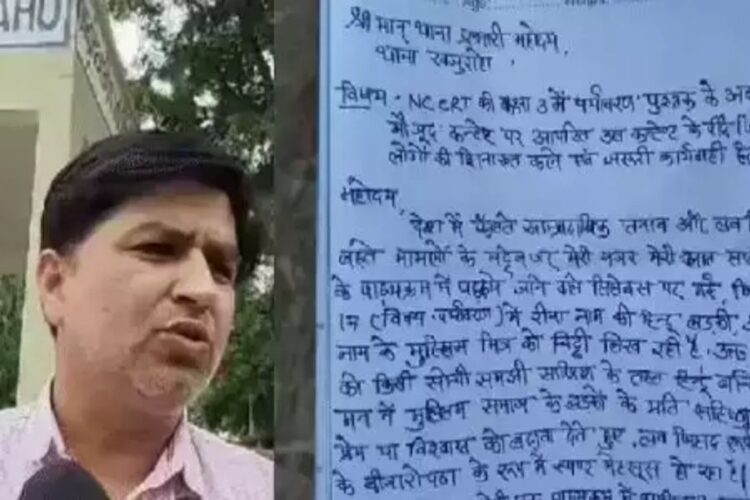 AHU
श्री मान् थाना प्रभारी महोदय,
थाना खजुराहो,
विषय - NCERT की कक्षा 3 में पर्यावरण पुस्तक के
मौजूद कन्टेन्ट पर आपत्ति उस कन्टेन्ट के
लोगों की शिनाख्त करने एवं जरूरी कार्यवाही
महोदय,
देश में फैलते साम्प्रदायिक तनाव और लव
मामलों के मद्देनजर मेरी नजर मेरी
के पाठ्यक्रम में पढ़ाये जाने वाले सिलेबस पर गई,
17 (विषय पर्यावरण) में रीना नाम की हिन्दू लड़की
नाम के मुस्लिम मित्र को चिट्ठी लिख रही है,
को किसी सोची समझी साजिश के तहत हिन्दू
मन में मुस्लिम समाज के लड़कों के प्रति
प्रेम या विश्वास को बढ़ावा देते हुए, लव जिहाद
के बीजारोपण के रूप में स्पष्ट महसूस हो रहा है।